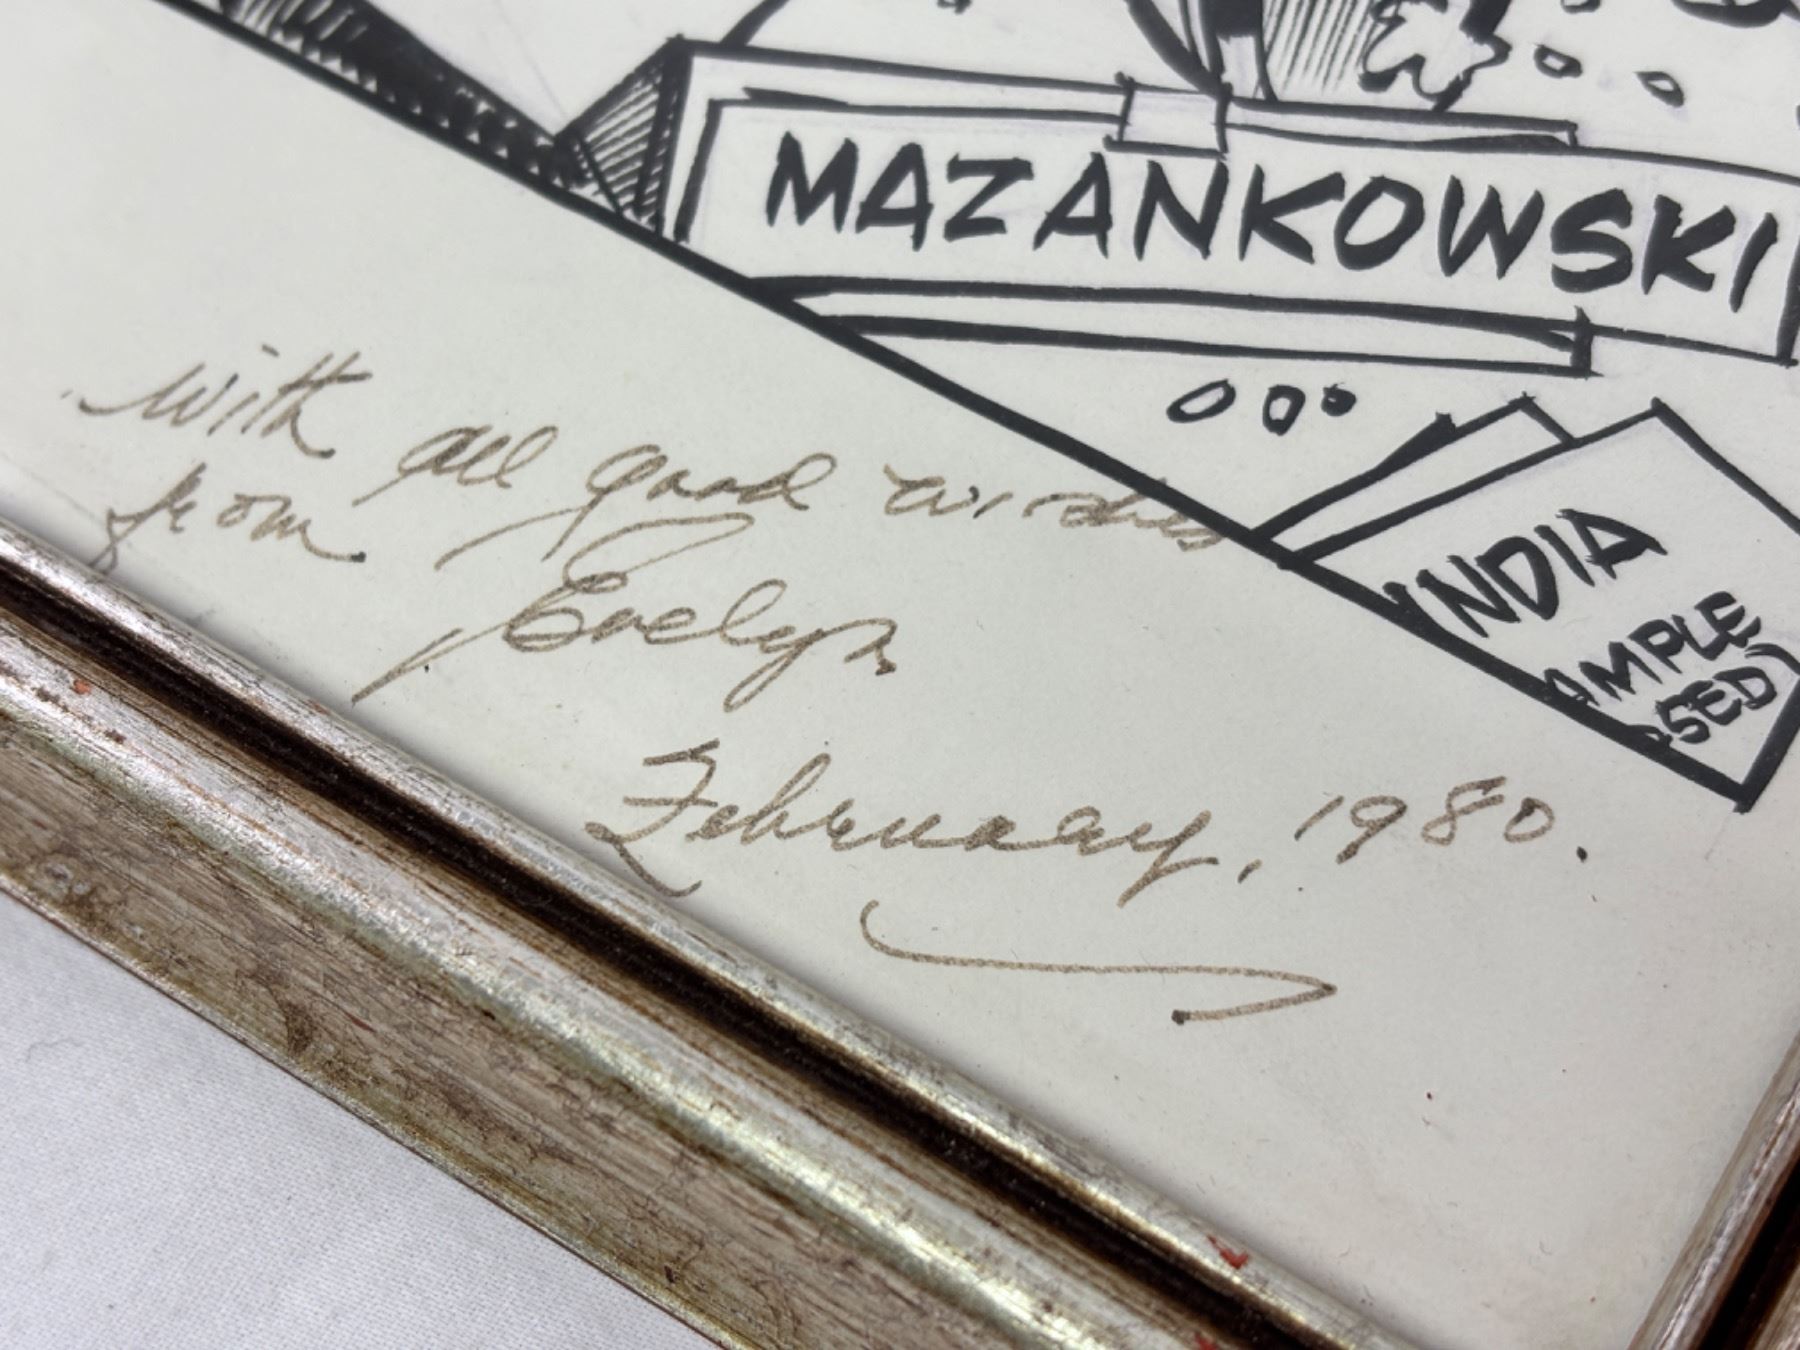 MAZANKOWSKI
INDIA
AMPLE
with all good wishes
from
Evelyn
February, 1980.